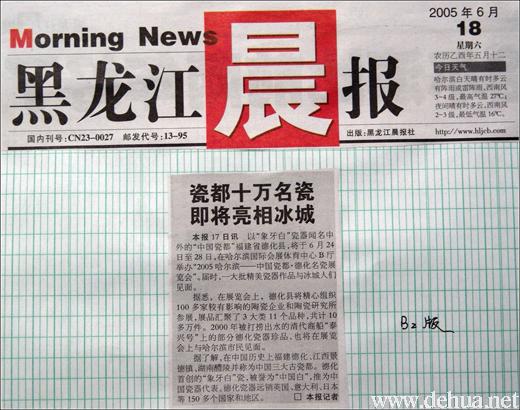 Morning News
黑龙江晨报
国内刊号:CN23-0027 邮发代号:13-95
出版:黑龙江晨报社
2005年6月
18
星期六
农历乙酉年五月十二
今日天气
哈尔滨白天晴有时多云
有阵雨或雷阵雨,西南风
3~4级,最高气温27℃;
夜间晴有时多云,西南风
2~3级,最低气温16℃。
http://www.hljcb.com
瓷都十万名瓷
即将亮相冰城
本报17日讯 以“象牙白”瓷器闻名中
外的“中国瓷都”福建省德化县,将于6月24
日至28日,在哈尔滨国际会展体育中心B厅
举办“2005哈尔滨——中国瓷都·德化名瓷展
览会”。届时,一大批精美瓷器作品与冰城人们
见面。
据悉,在展览会上,德化县将精心组织
100多家较有影响的陶瓷企业和陶瓷研究所
参展,展品汇聚了3大类11个品种,共计10
多万件。2000年被打捞出水的清代商船“泰
兴号”上的部分德化瓷器珍品,也将在展览
会上与哈尔滨市民见面。
据了解,在中国历史上福建德化、江西景
德镇、湖南醴陵并称为中国三大古瓷都。德化
首创的“象牙白”瓷,被誉为“中国白”,推为中
国瓷器代表。德化瓷器远销英国、意大利、日本
等150多个国家和地区。 □本报记者
B2版
www.dehua.net